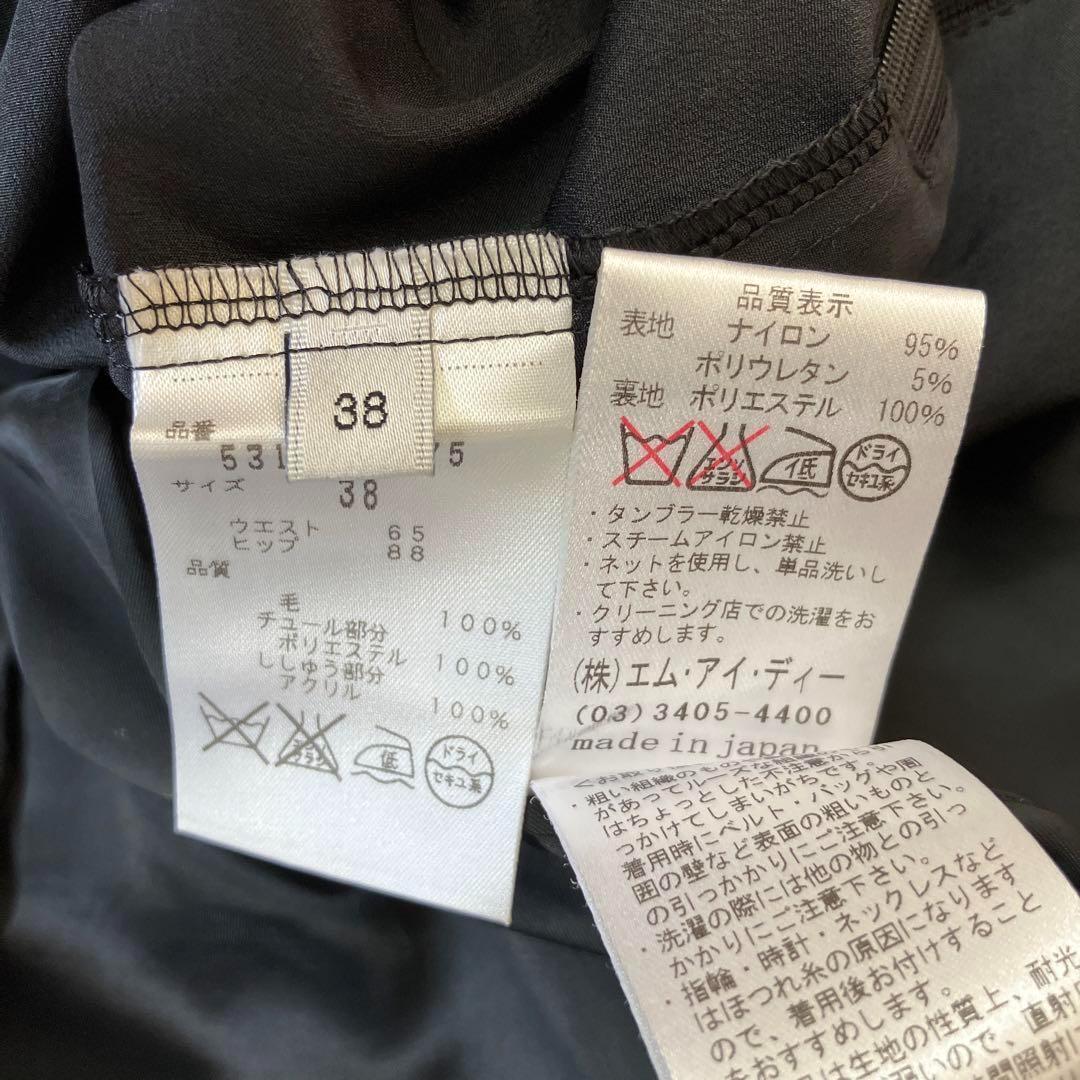 38
品番
531 75
サイズ 38
ウエスト 65
ヒップ 88
品質
毛 100%
チュール部分
ポリエステル 100%
ししゅう部分
アクリル 100%
エンソ
サラシ
低
ドライ
セキユ系
品質表示
表地 ナイロン 95%
ポリウレタン 5%
裏地 ポリエステル 100%
エンソ
サラシ
イ低
ドライ
セキユ系
・タンブラー乾燥禁止
・スチームアイロン禁止
・ネットを使用し、単品洗いし
て下さい。
・クリーニング店での洗濯をお
すすめします。
(株)エム・アイ・ディー
(03)3405-4400
made in japan
・粗い組織のもの
があってルーズな組
はちょっとした不注意か
っかけてしまいがちです。
着用時にベルト・バッグや周
囲の壁など表面の粗いものと
の引っかかりにご注意下さい。
・洗濯の際には他の物との引っ
かかりにご注意下さい。
・指輪・時計・ネックレスなど
はほつれ糸の原因になります
ので、着用後お付けすること
をおすすめします。
は生地の性質上、耐光
弱いので、直射
間照射に